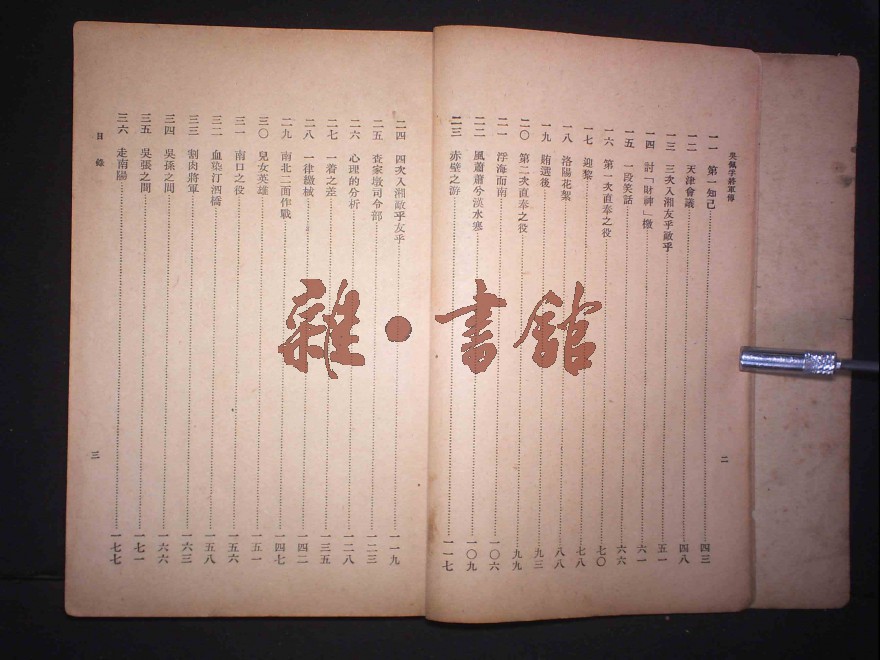 吳佩孚將軍傳
一一 第一知己 四三
一二 天津會議 四八
一三 三次入湘友乎敵乎 五一
一四 討「財神」檄 六一
一五 一段笑話 六六
一六 第一次直奉之役 七〇
一七 迎黎 七八
一八 洛陽花絮 八八
一九 賄選後 九三
二〇 第二次直奉之役 九九
二一 浮海而南 一〇六
二二 風蕭蕭兮漢水寒 一〇九
二三 赤壁之游 一一七
二
二四 四次入湘敵乎友乎 一一九
二五 查家墩司令部 一二三
二六 心理的分析 一二八
二七 一着之差 一三五
二八 一律繳械 一四二
二九 南北二面作戰 一四七
三〇 兒女英雄 一五一
三一 南口之役 一五六
三二 血染汀泗橋 一五八
三三 割肉將軍 一六三
三四 吳孫之間 一六六
三五 吳張之間 一七一
三六 走南陽 一七七
目錄
三
雜·書館